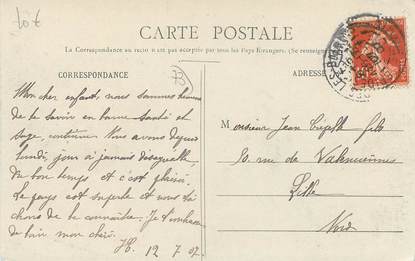 10 €
CARTE POSTALE
La Correspondance au recto n'est pas acceptée par tous les Pays Etrangers. (Se renseigner
CORRESPONDANCE
ADRESSE
Mon cher enfant, nous sommes heureux
de te savoir en bonne santé et
sage, continue. Nous avons depuis
lundi, jour à jamais
du bon temps et c'est plaisir.
Le pays est superbe et nous tâ
chons de le connaître. Je t'embrasse
de loin mon chéri.
12 7 07
Monsieur Jean fils
rue de Valenciennes
Lille
Nord